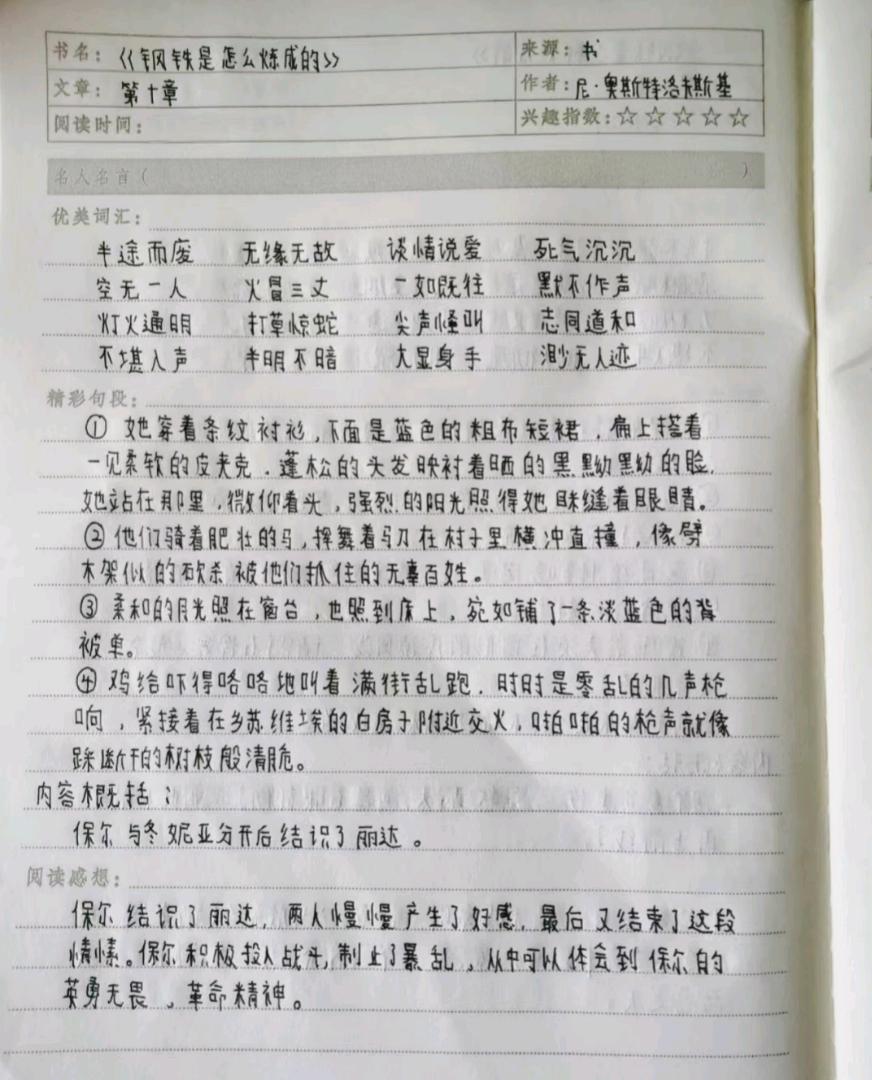 书名：《钢铁是怎么炼成的》 来源：书
文章：第十章 作者：尼·奥斯特洛夫斯基
阅读时间： 兴趣指数：☆☆☆☆☆
名人名言（ ）
优美词汇：
半途而废 无缘无故 谈情说爱 死气沉沉
空无一人 火冒三丈 一如既往 默不作声
灯火通明 打草惊蛇 尖声怪叫 志同道和
不堪入声 半明不暗 大显身手 渺无人迹
精彩句段：
① 她穿着条纹衬衫，下面是蓝色的粗布短裙，肩上搭着
一见柔软的皮夹克．蓬松的头发映衬着晒的黑黝黑幼的脸．
她站在那里，微仰着头，强烈的阳光照得她眯缝着眼睛。
② 他们骑着肥壮的马，挥舞着马刀在村子里横冲直撞，像劈
木架似的砍杀被他们抓住的无辜百姓。
③ 柔和的月光照在窗台，也照到床上，宛如铺了一条淡蓝色的背
被单。
④ 鸡给吓得咯咯地叫着满街乱跑．时时是零乱的几声枪
响，紧接着在乡苏维埃的白房子附近交火，啪啪的枪声就像
踩断干的树枝般清脆。
内容概括：
保尔与冬妮亚分开后结识了丽达。
阅读感想：
保尔结识了丽达，两人慢慢产生了好感．最后又结束了这段
情愫。保尔积极投入战斗，制止了暴乱，从中可以体会到保尔的
英勇无畏，革命精神。